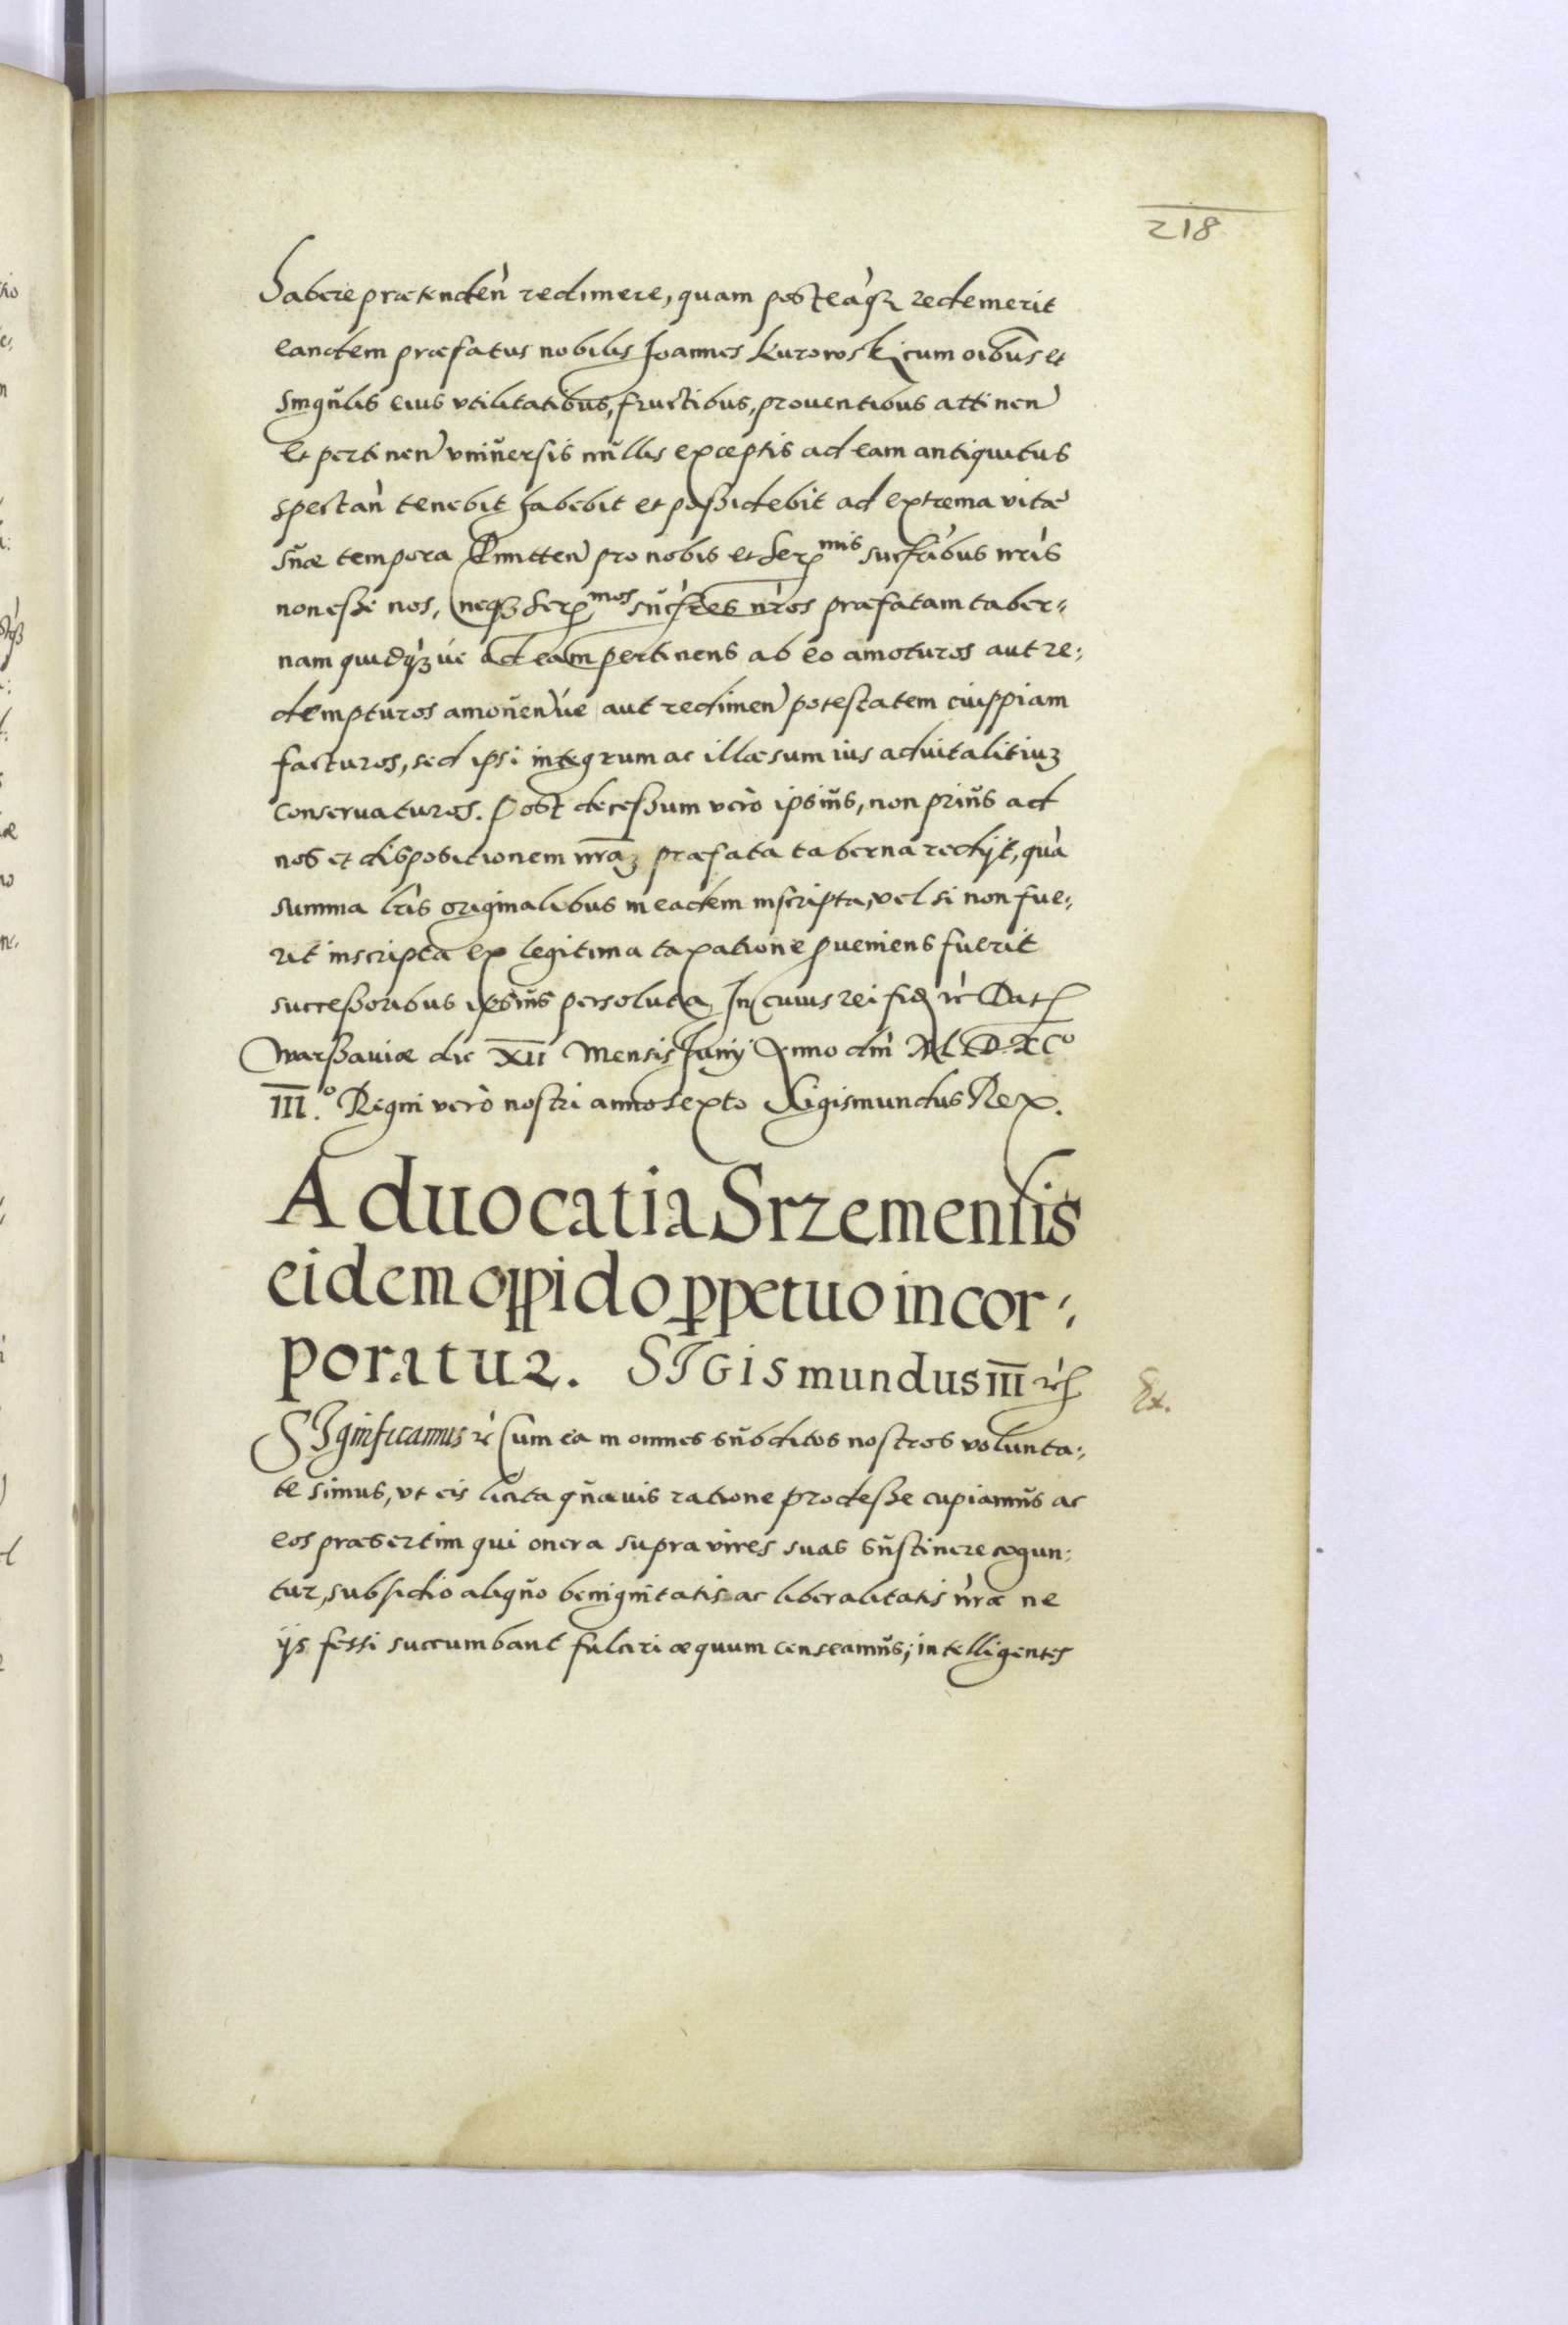 218
Habere prætenden̄ redimere, quam posteàq̃ꝫ redemerit
eandem præfatus nobilis Joannes Kurowski cum oib̃us et
singũlis eius vtilitatibus, fructibus, prouentibus attinen̄
et pertinen̄ vniũersis nũllis exceptis ad eam antiquitus
spectan̄ tenebit habebit et poßidebit ad extrema vitæ
sũæ tempora Promitten̄ pro nobis et Ser^mis sucſribus nr̄is
non eße nos, neqꝫ Ser^mos sũcſres nr̄os præfatam taber:
nam quidq̃ꝫ ue ad eam pertinens ab eo amoturos aut re:
dempturos amoũen̄ ue aut redimen̄ potestatem cuippiam
facturos, sed ipsi integrum ac illæsum ius aduitalitiuꝫ
conseruaturos. Post deceßum verò ipsiũs, non priũs ad
nos et dispositionem nr̄aꝫ præfata taberna redijt, quà
summa lr̄is originalibus in eadem inscripta, vel si non fue:
rit inscripta ex legitima taxatione ꝓueniens fuerit
succeßoribus ipsiũs persoluta, In cuius rei fidꝫ ꝛc̄ Dat
Warßauiæ die XII Mensis Junij Anno dn̄i M. D. XC°
III.° Regni verò nostri anno sexto Sigismundus Rex.
Aduocatia Srzemensis
eidem oppido ꝑpetuo incor:
poratur. SIGismundus III ꝛc̄
Ex.
SIgnificamus ꝛc̄ Cum ea in omnes sũbditos nostros volunta:
te simus, vt eis licita qũævis ratione prodeße cupiamũs ac
eos præsertim qui onera supra vires suas sũstinere cogun:
tur, subsidio aliqũo benignitatis ac liberalitatis nr̄æ ne
ijs fessi succumbant fulciri æquum censeamũs; intelligentes